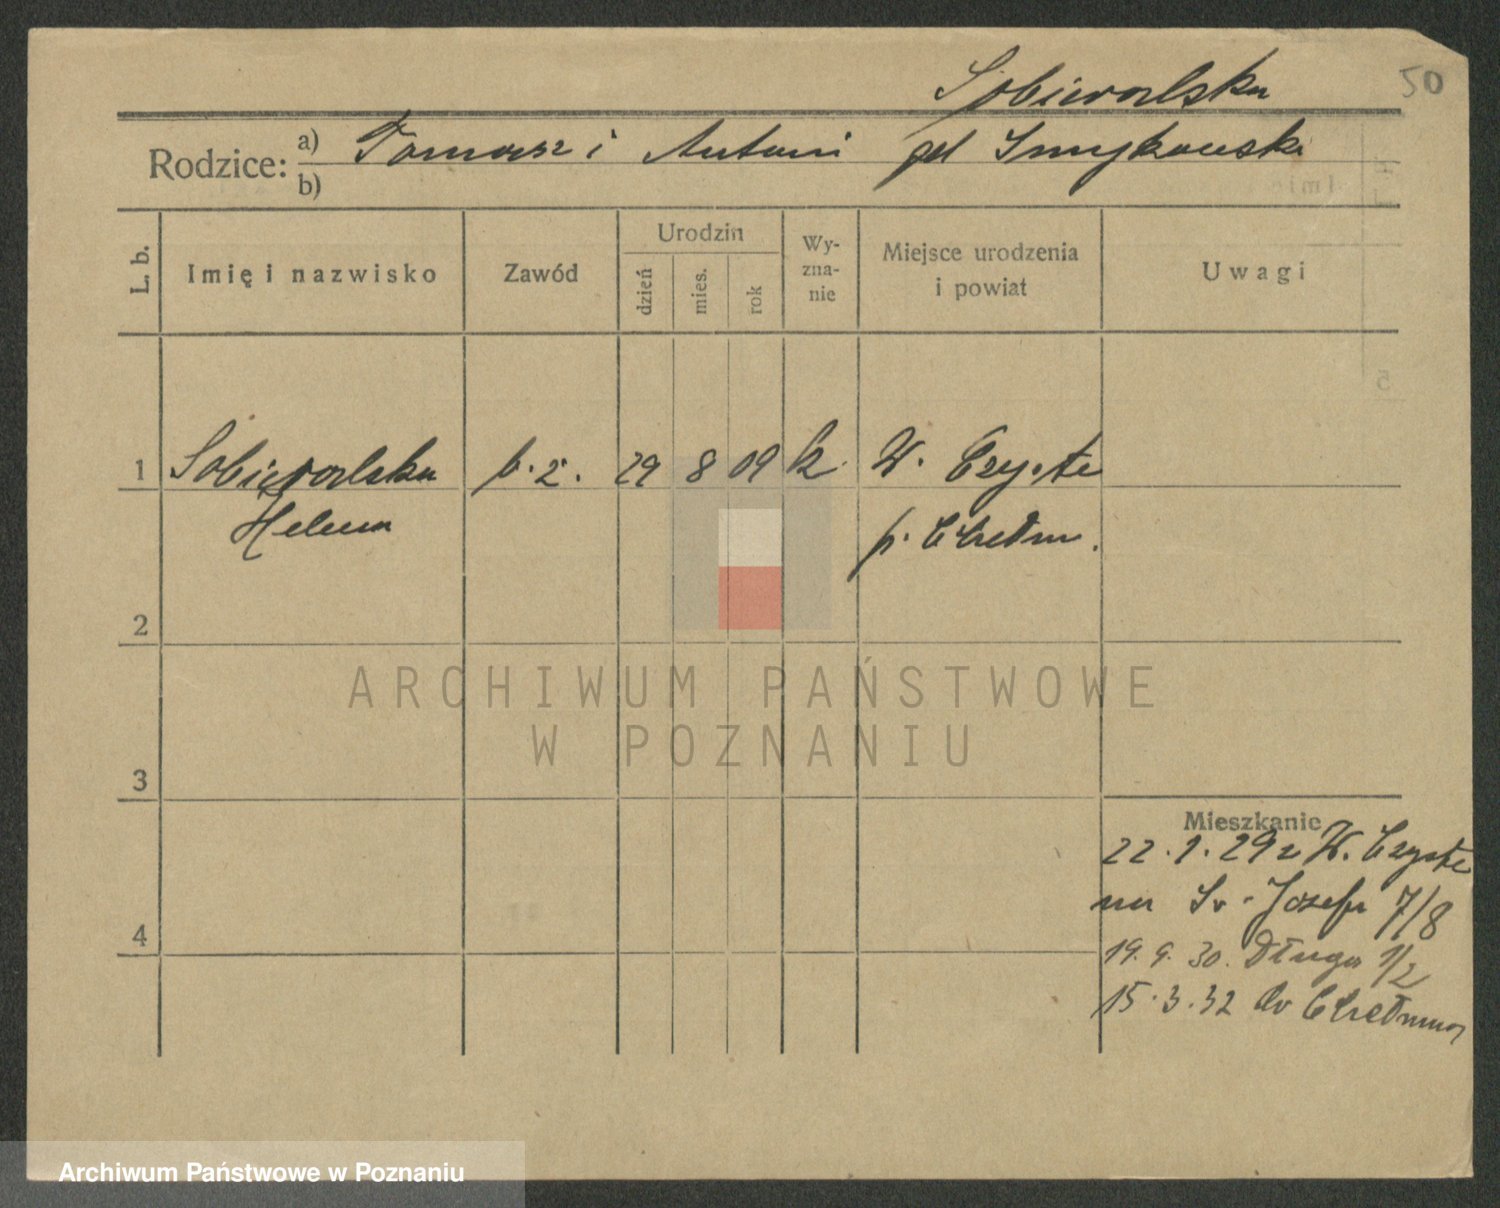 50
Sobieralska
Rodzice: a) Tomasz i Antoni gd Smykowski
b)
L. b.
Imię i nazwisko
Zawód
Urodzin
dzień
mies.
rok
Wy-
zna-
nie
Miejsce urodzenia
i powiat
Uwagi
1 Sobieralska b. z. 29 8 09 k. W. Czyste
Helena p. Chełm.
2
3
4
Mieszkanie
22. 1. 29 z W. Czyste
na Św. Józefa 7/8
19. 9. 30. Długa 1/2
15. 3. 32 do Chełmna
ARCHIWUM PAŃSTWOWE
W POZNANIU
Archiwum Państwowe w Poznaniu